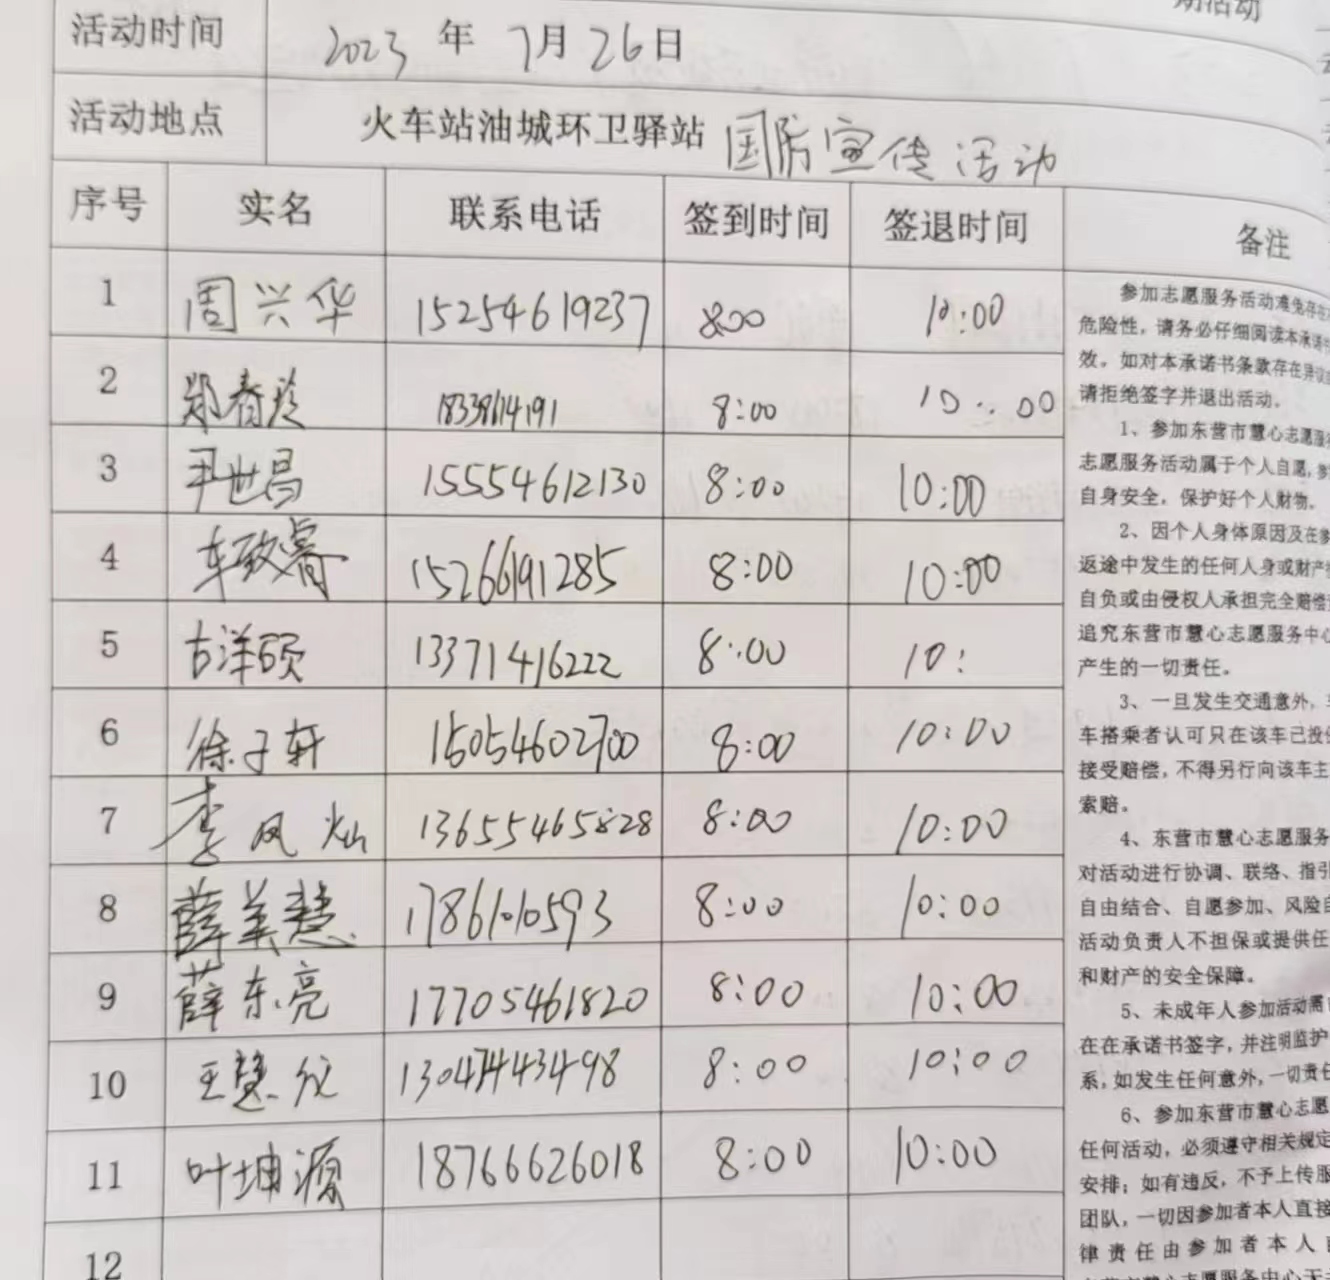 期活动
活动时间 2023 年 7月 26日
活动地点 火车站油城环卫驿站 国防宣传活动
序号 实名 联系电话 签到时间 签退时间 备注
1 周兴华 15254619237 8:00 10:00
2 郑春玲 8:00 10:00
3 尹世昌 15554612130 8:00 10:00
4 车致睿 15266191285 8:00 10:00
5 古洋硕 13371416222 8:00 10:
6 徐子轩 15054602700 8:00 10:00
7 李凤灿 13655465828 8:00 10:00
8 薛美慧 8:00 10:00
9 薛东亮 17705461820 8:00 10:00
10 王慧 8:00 10:00
11 叶坤源 18766626018 8:00 10:00
12
参加志愿服务活动难免存在
危险性，请务必仔细阅读本承诺书
效。如对本承诺书条款存在异议
请拒绝签字并退出活动。
1、参加东营市慧心志愿服
志愿服务活动属于个人自愿，参
自身安全，保护好个人财物。
2、因个人身体原因及在参
返途中发生的任何人身或财产
自负或由侵权人承担完全赔偿
追究东营市慧心志愿服务中心
产生的一切责任。
3、一旦发生交通意外，
车搭乘者认可只在该车已投保
接受赔偿，不得另行向该车主
索赔。
4、东营市慧心志愿服务
对活动进行协调、联络、指引
自由结合、自愿参加、风险自
活动负责人不担保或提供任
和财产的安全保障。
5、未成年人参加活动需
在在承诺书签字，并注明监护
系，如发生任何意外，一切责任
6、参加东营市慧心志愿
任何活动，必须遵守相关规定
安排；如有违反，不予上传服
团队，一切因参加者本人直接
律责任由参加者本人